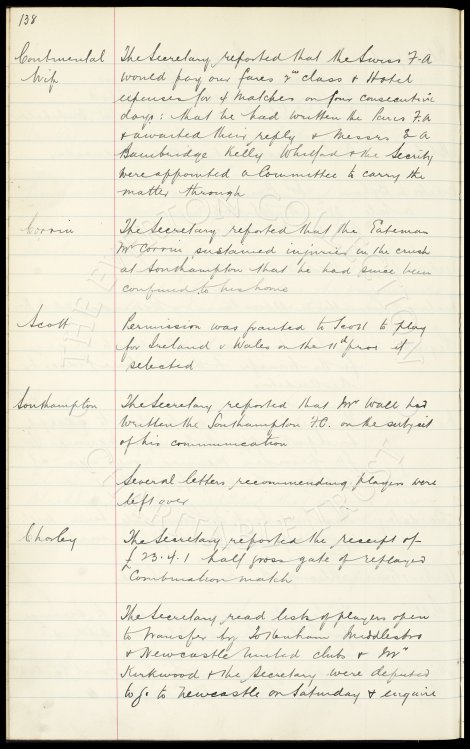 138
Continental Trip
The Secretary reported that the Swiss F.A
would pay our fares 2nd class & Hotel
expenses for 4 matches on four consecutive
days: that he had written the Paris F.A
& awaited their reply & Messrs E A
Bainbridge Kelly Whitford & the Secrity
were appointed a Committee to carry the
matter through
Corrin
The Secretary reported that the Gateman
Mr Corrin sustained injuries in the crush
at Southampton that he had since been
confined to his home
Scott
Permission was granted to Scott to play
for Ireland v Wales on the 11th prox if
selected
Southampton
The Secretary reported that Mr Wall had
written the Southampton F.C. on the subject
of his communication
Several letters recommending players were
left over
Chorley
The Secretary reported the receipt of
£23.4.1 half gross gate of replayed
Combination match
The Secretary read lists of players open
to transfer by Tottenham Middlesbro
& Newcastle United clubs & Mr
Kirkwood & the Secretary were deputed
to go to Newcastle on Saturday & enquire
THE EVERTON COLLECTION
CHARITABLE TRUST